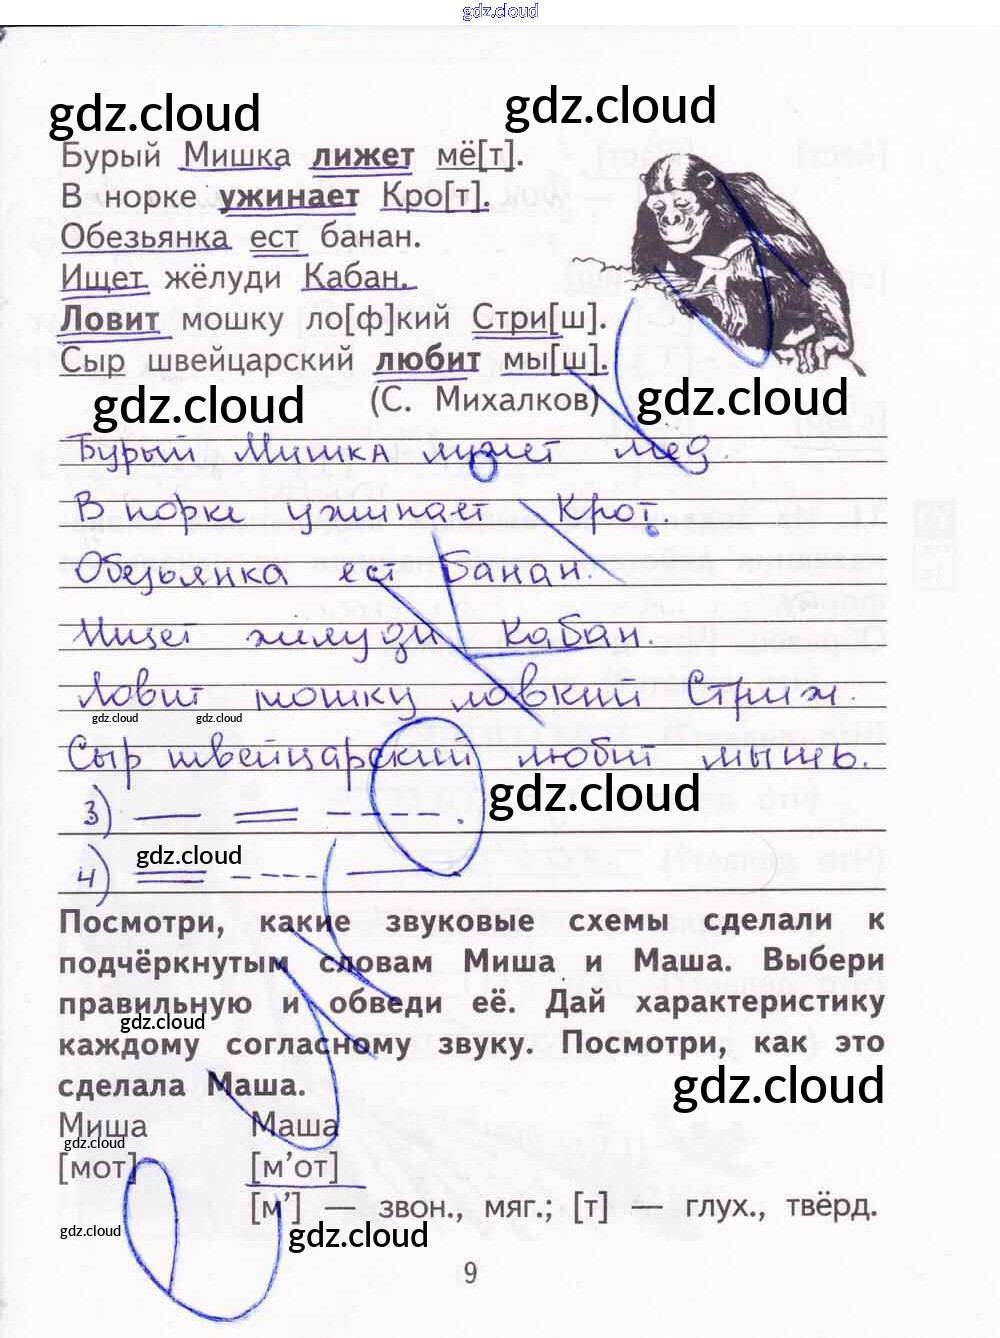 gdz.cloud
gdz.cloud
gdz.cloud
Бурый Мишка лижет мё[т].
В норке ужинает Кро[т].
Обезьянка ест банан.
Ищет жёлуди Кабан.
Ловит мошку ло[ф]кий Стри[ш].
Сыр швейцарский любит мы[ш].
(С. Михалков)
gdz.cloud
gdz.cloud
Бурый Мишка лижет мед.
В норке ужинает Крот.
Обезьянка ест Банан.
Ищет жилуди Кабан.
Ловит мошку ловкий Стриж.
gdz.cloud
gdz.cloud
Сыр швейцарский любит мышь.
gdz.cloud
3)
gdz.cloud
4)
Посмотри, какие звуковые схемы сделали к
подчёркнутым словам Миша и Маша. Выбери
правильную и обведи её. Дай характеристику
gdz.cloud
каждому согласному звуку. Посмотри, как это
сделала Маша.
gdz.cloud
Миша Маша
gdz.cloud
[мот] [м’от]
[м’] — звон., мяг.; [т] — глух., твёрд.
gdz.cloud
gdz.cloud
9